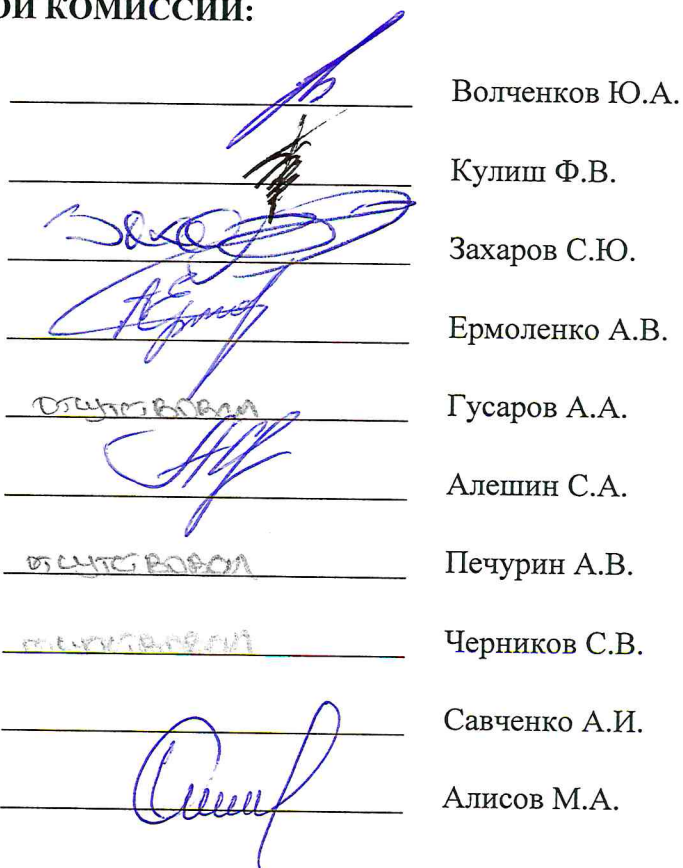 ОЙ КОМИССИИ:
Волченков Ю.А.
Кулиш Ф.В.
Захаров С.Ю.
Ермоленко А.В.
отсутствовал Гусаров А.А.
Алешин С.А.
отсутствовал Печурин А.В.
отсутствовал Черников С.В.
Савченко А.И.
Алисов М.А.